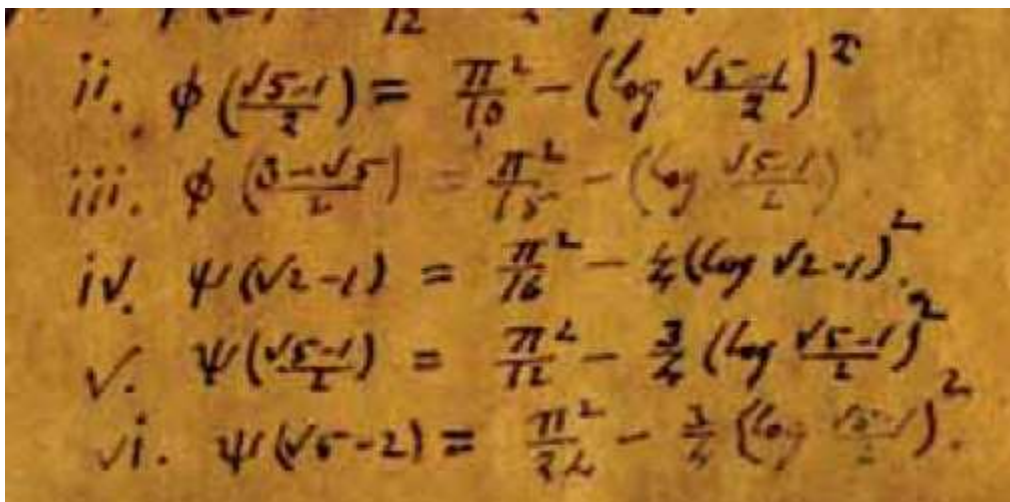 ii. φ((√5-1)/2) = π²/10 - (log (√5-1)/2)²
iii. φ((3-√5)/2) = π²/15 - (log (√5-1)/2)
iv. ψ(√2-1) = π²/16 - 1/4(log √2-1)².
v. ψ((√5-1)/2) = π²/12 - 3/4(log (√5-1)/2)²
vi. ψ(√5-2) = π²/24 - 3/4(log (√5-1)/2)².